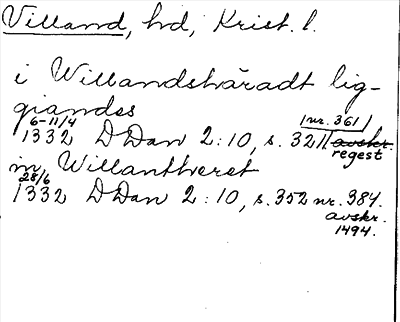 Villand, hd, Krist. l.
i Willandshäradt lig-
giandes
6-11/4 |nr. 361|
1332 D Dan 2:10, s. 321 avskr.
regest
in Willantheret
28/6
1332 D Dan 2:10, s. 352 nr. 384.
avskr.
1494.